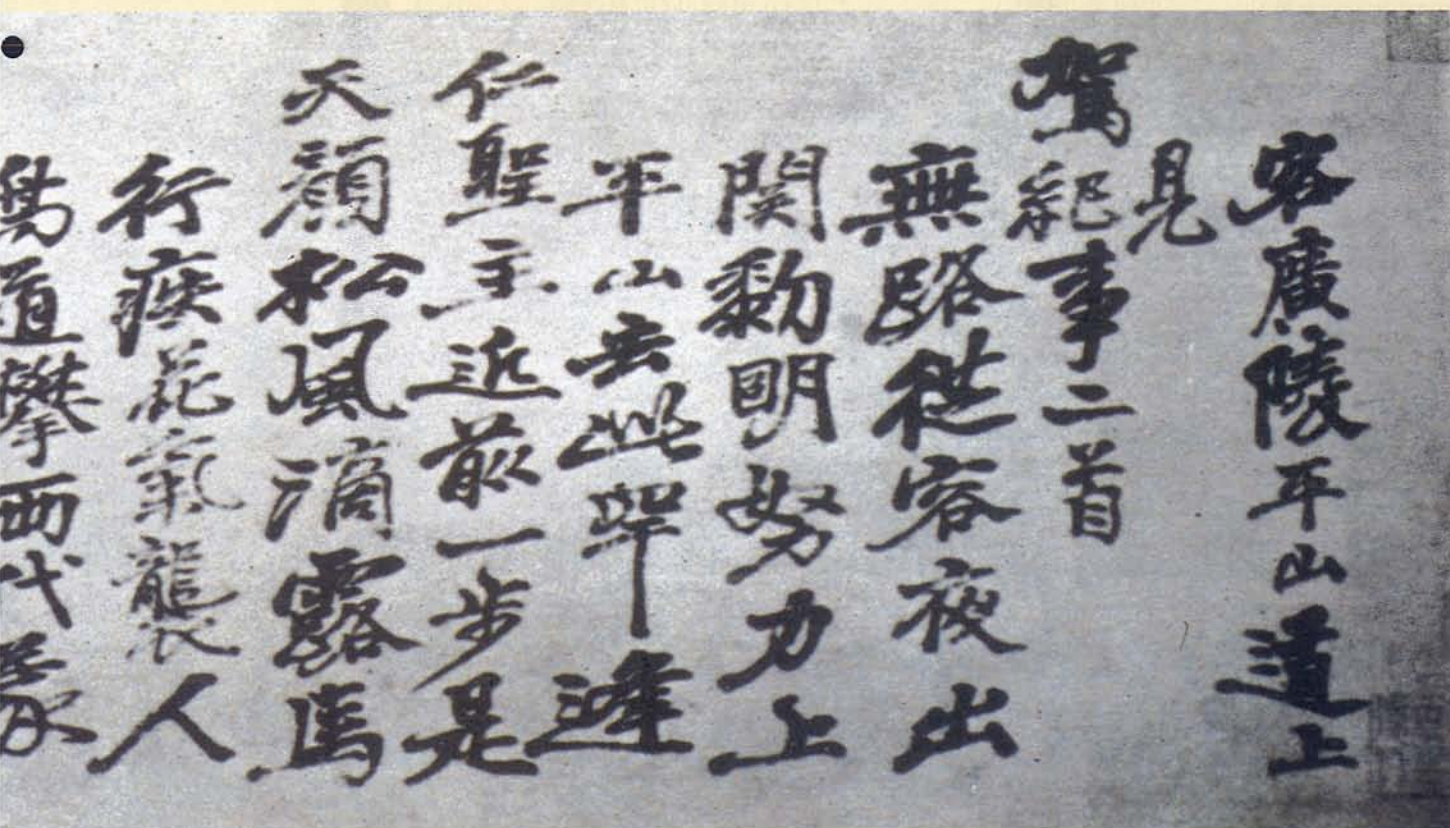 客廣陵平山道上
見
駕紀事二首
無路從容夜出
関黎明努力上
平山去此罕逢
仁聖主近前一步是
天顔松風滴露馬
行疾花氣襲人
鳥道攀兩代蒙